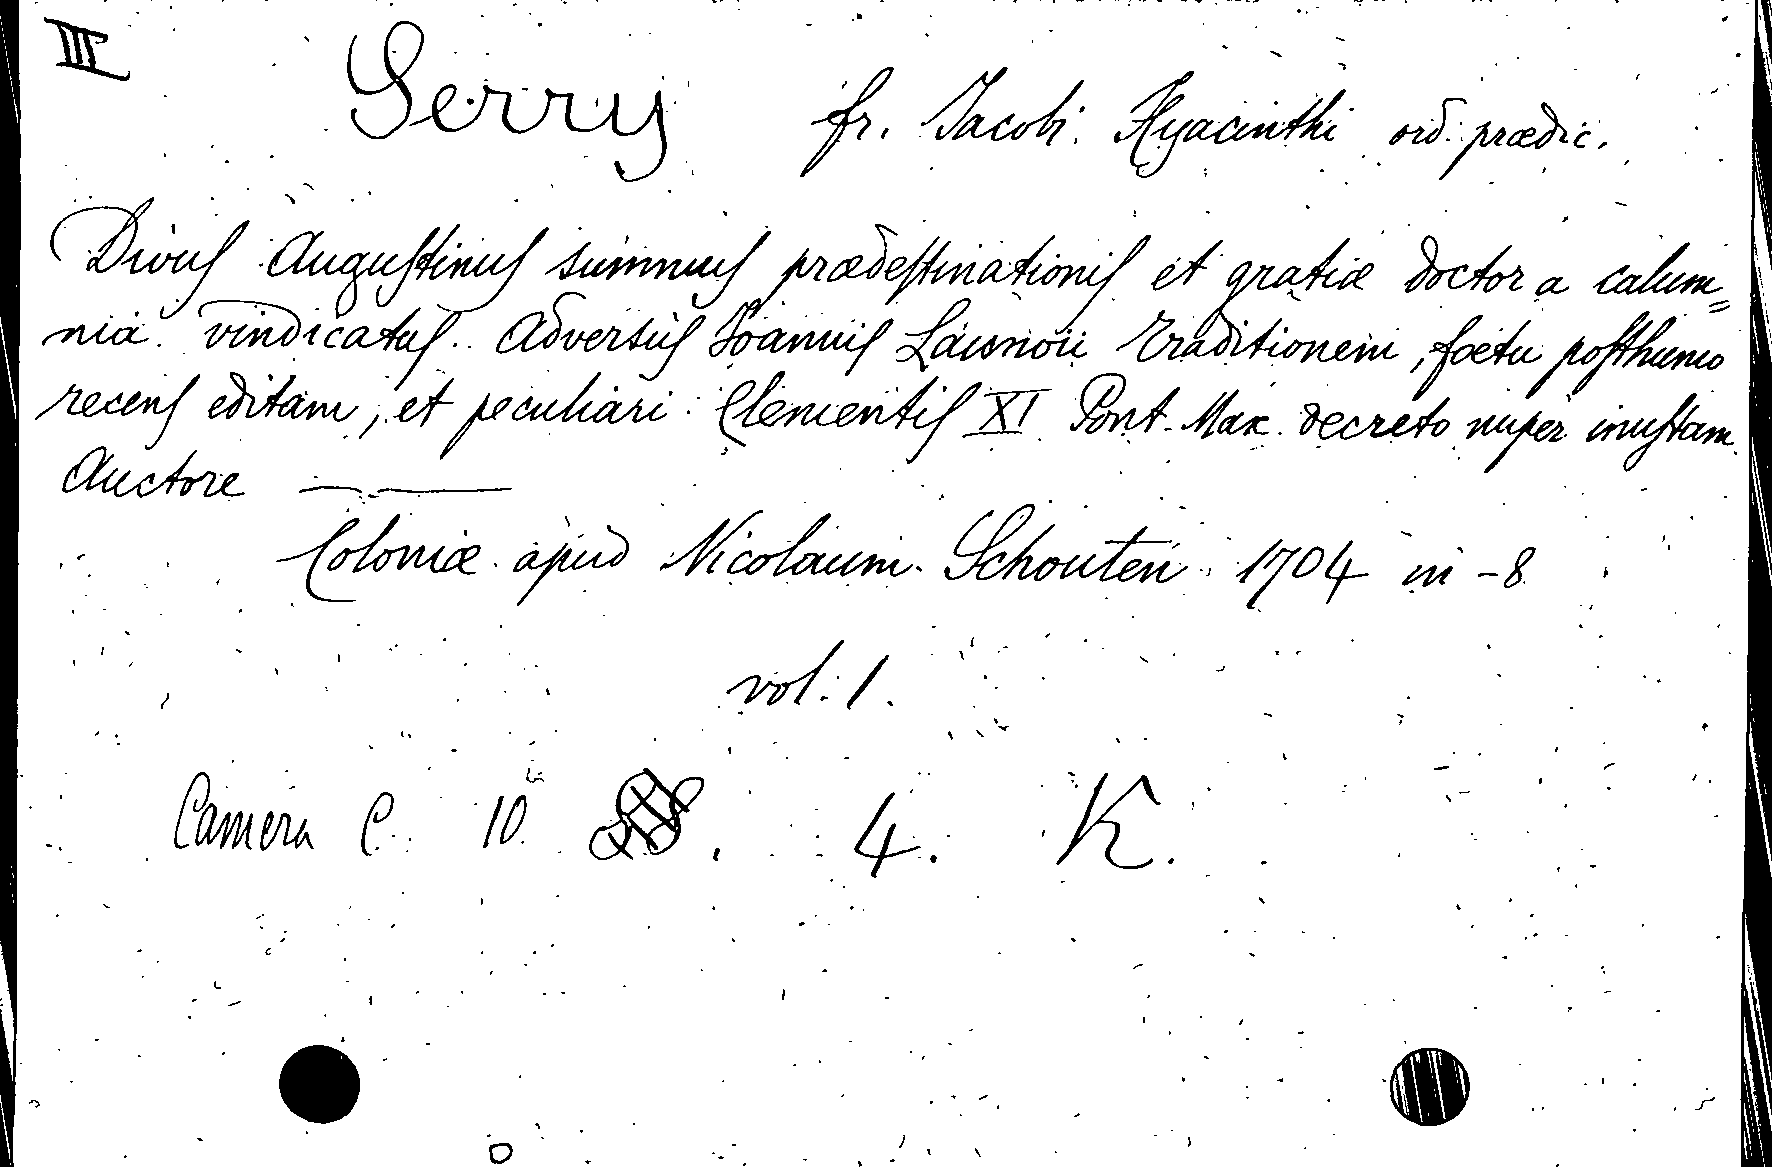 III
Serry fr. Jacobi Hyacinthi ord. prædic.
Divus Augustinus summus prædestinationis et gratiæ doctor a calum=
nia vindicatus. Adversus Joannis Launoii traditionem, fœtu posthumo
recens editam, et peculiari Clementis XI Pont. Max. decreto nuper inustam.
Auctore ———
Coloniæ apud Nicolaum Schouten 1704 in -8
vol. 1.
Camera C. 10 . 4. K.